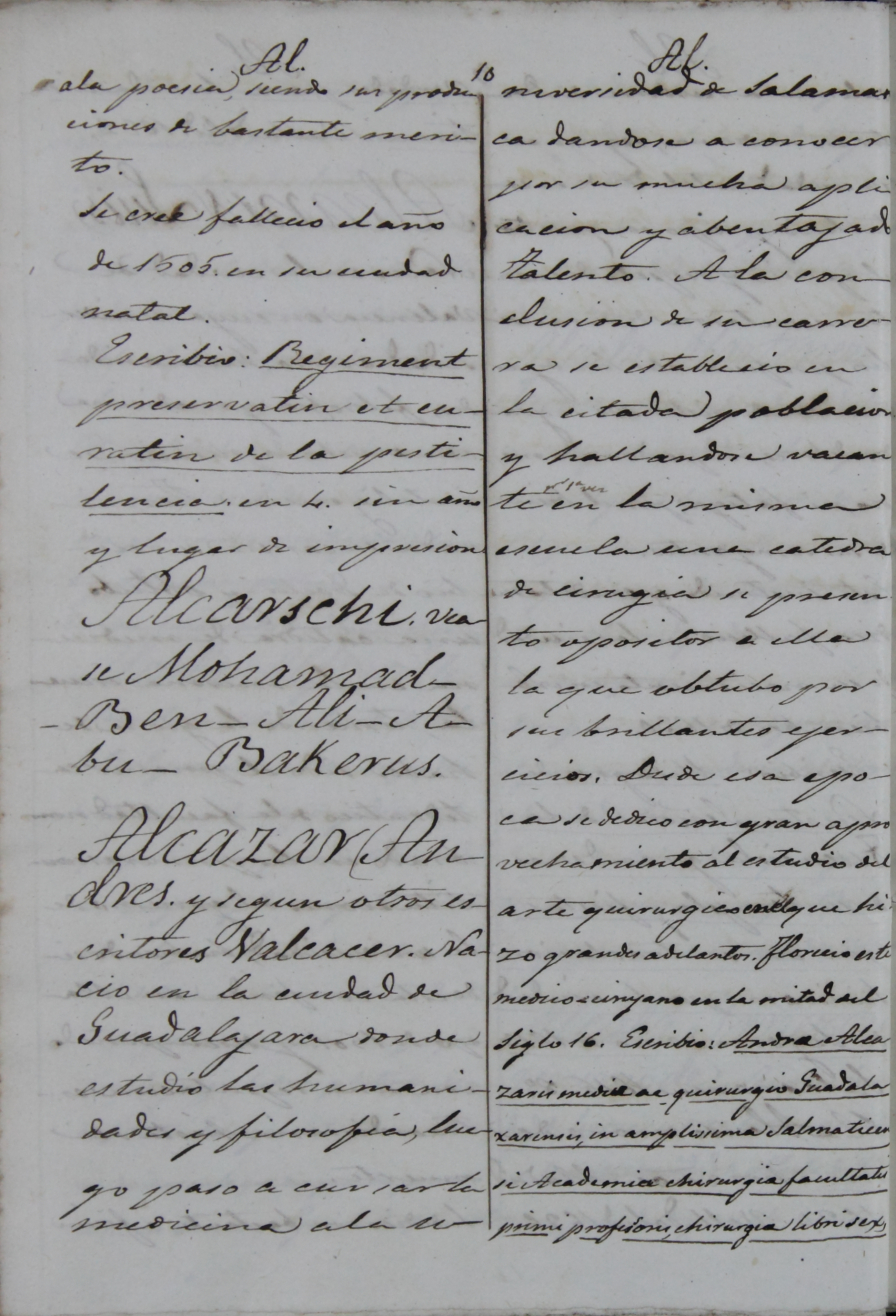 Al.
ala poesia, siendo sus produc
ciones de bastante meri-
to.
Se cree fallecio el año
de 1505. en su ciudad
natal.
Escribio: Regiment
preservatin et cu-
ratin de la pesti-
lencia. en 4. sin año
y lugar de impresion
Alcarschi. vea
se Mohamad-
-Ben-Ali-A-
bu-Bakerus.
Alcazar (An-
dres. y segun otros es-
critores Valcacer. Na-
cio en la ciudad de
Guadalajara donde
estudio las humani-
dades y filosofia, lue-
go paso a cursar la
medicina a la u-
10
Al.
niversidad de Salaman
ca dandose a conocer
por su mucha apli
cacion y abentajado
talento. A la con-
clusion de su carre-
ra se establecio en
la citada poblacion
y hallandose vacan
te en la misma
escuela una catedra
de cirugia se presen
to opositor a ella
la que obtubo por
sus brillantes ejer-
cicios. Desde esa epo-
ca se dedico con gran apro
vechamiento al estudio del
arte quirurgico en el que hi-
zo grandes adelantos. Florecio este
medico-cirujano en la mitad del
Siglo 16. Escribio: Andrea Alca
zaris medici ac quirurgio Guadala
xarensis, in amplissima Salmaticen
si Academia chirurgia facultatis
primi profesoris, chirurgia libri sex,